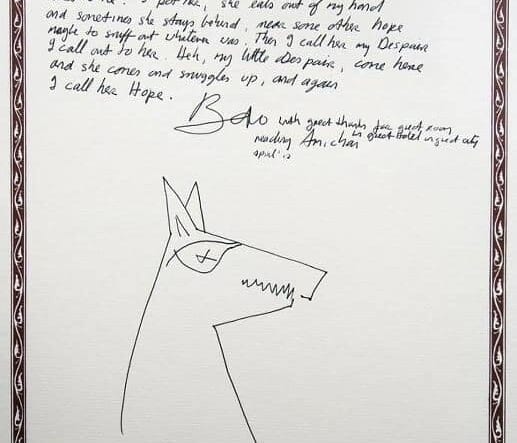 her, she eats out of my hand
and sometimes she stays behind, near some other hope
maybe to sniff out whatever was. Then I call her my Despair
I call out to her. Heh, my little Despair, come here
and she comes and snuggles up, and again
I call her Hope.
with great thanks for great room
reading in great hotel in great city